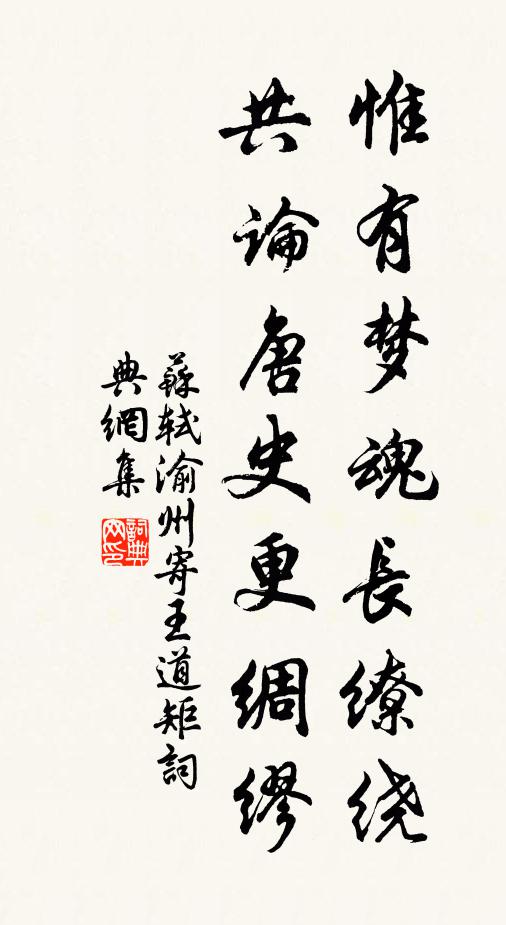 惟有梦魂長缭绕
共論唐史更綢繆
蘇軾渝州寄王道矩詞
典網集
詞典网印